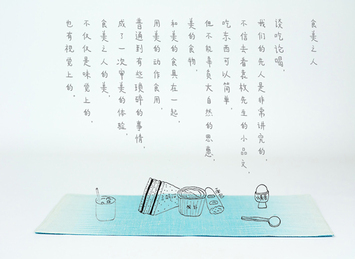 食美之人
谈吃论喝,
我们的先人是非常讲究的,
不信去看袁枚先生的小品文。
吃东西可以简单,
但不能辜负大自然的恩惠。
美的食物,
和美的食具在一起,
用美的动作食用,
普通到有些琐碎的事情,
成了一次审美的体验。
食美之人的美,
不仅仅是味觉上的,
也有视觉上的。